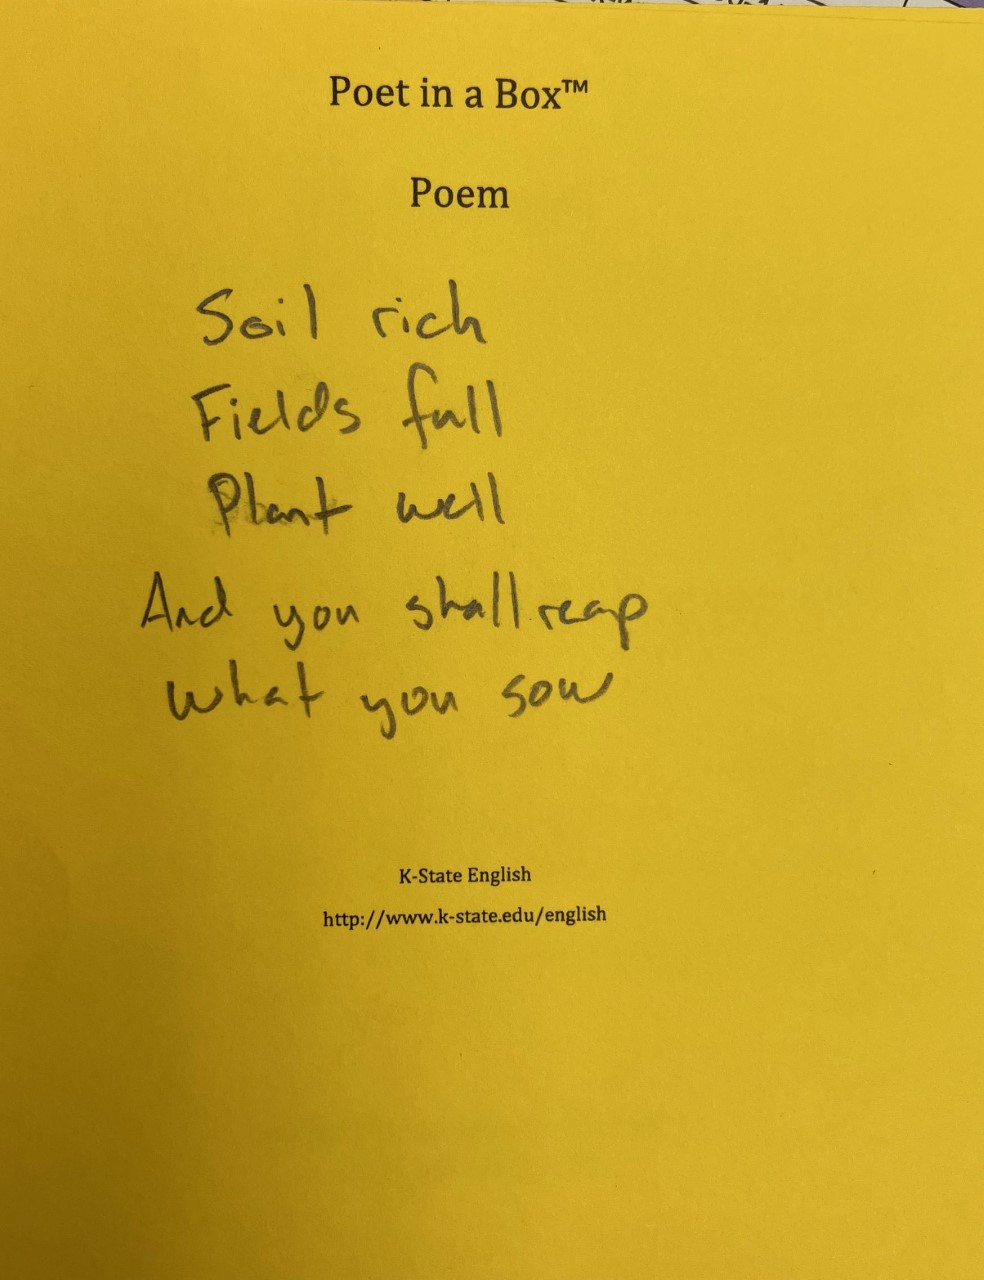 Poet in a Box™
Poem
Soil rich
Fields full
Plant well
And you shall reap
what you sow
K-State English
http://www.k-state.edu/english